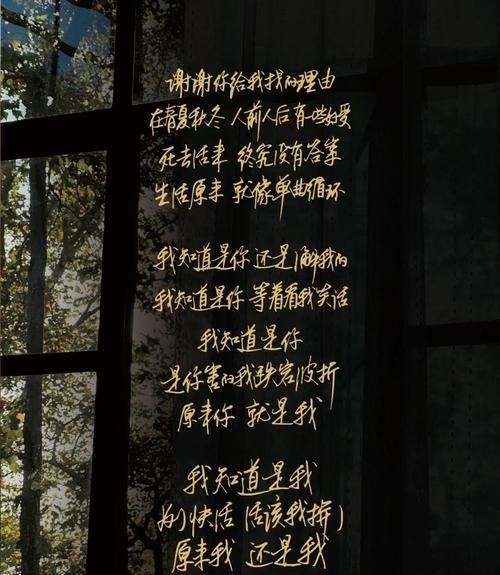 谢谢你给我找的理由
在春夏秋冬 人前人后有些好受
死去活来 终究没有答案
生活原来 就像单曲循环
我知道是你 还是了解我的
我知道是你 等着看我笑话
我知道是你
是你害的我跌宕波折
原来你 就是我
我知道是我
为了快活 活该我
原来我 还是我